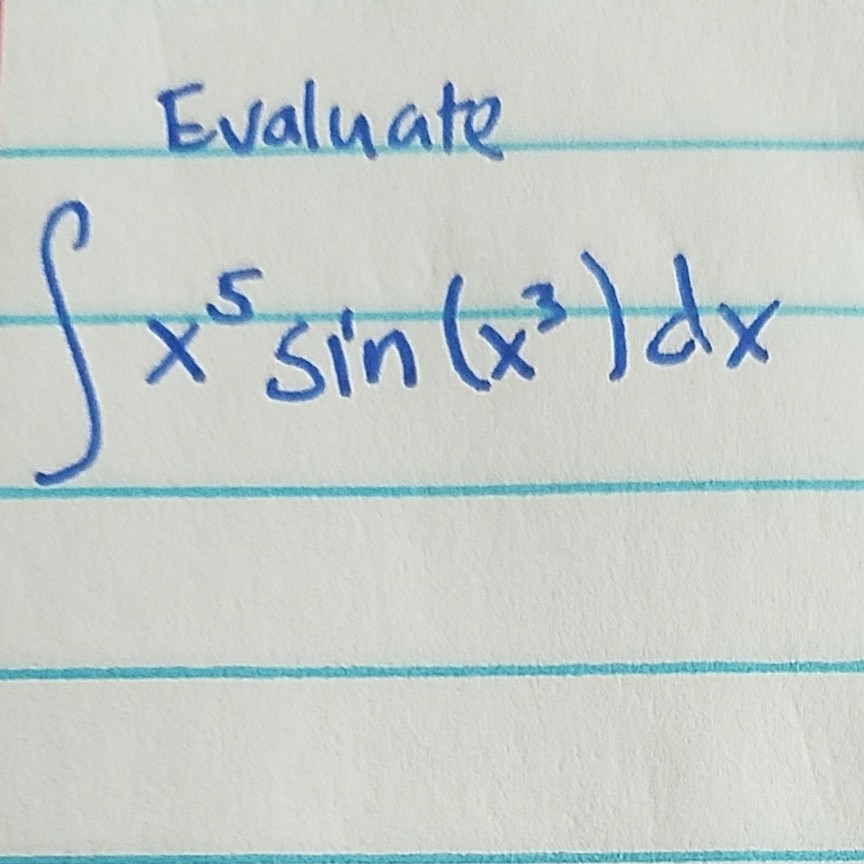 Evaluate
∫ x⁵ sin(x³) dx